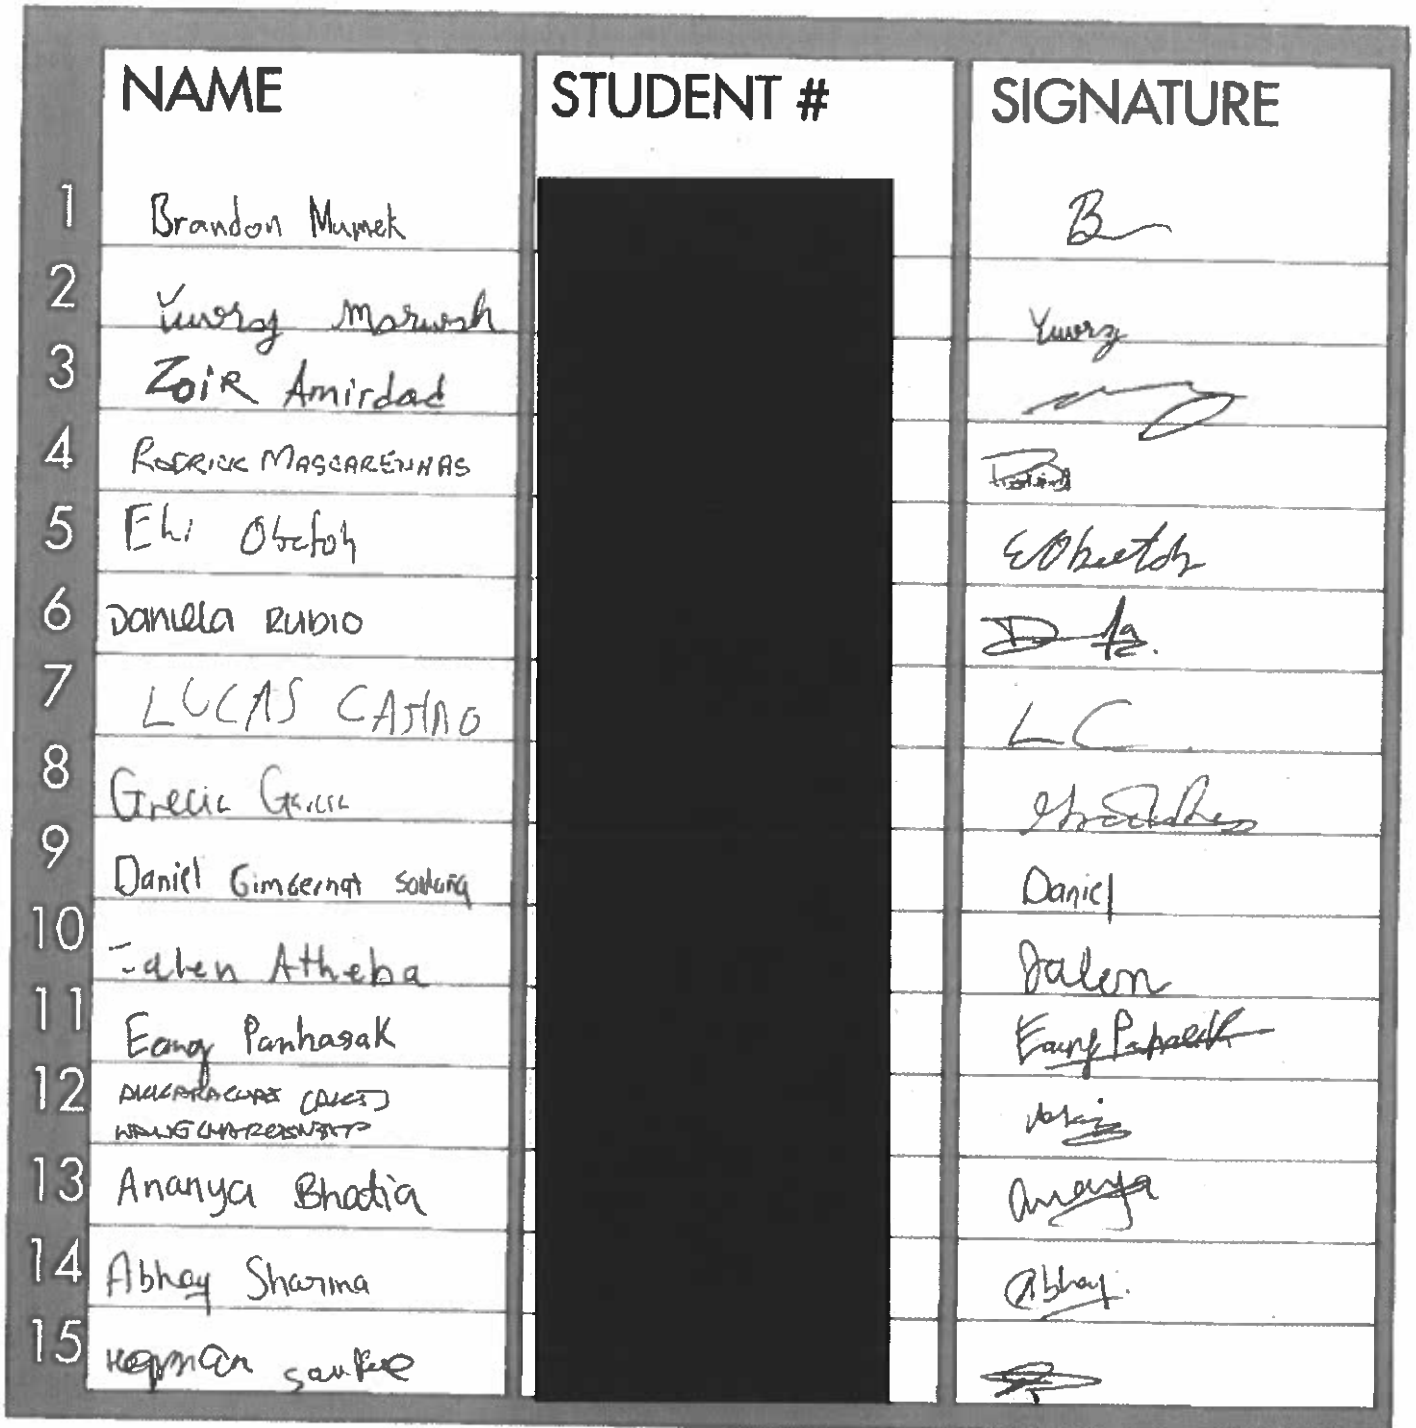 NAME STUDENT # SIGNATURE
1 Brandon Mumek B
2 Yuvraj Yuvraj
3 Zoir Amirdad
4 RODRICK MASCARENHAS
5 Ehi Obetoh EObetoh
6 Daniela RUBIO
7 LUCAS CASTRO LC
8 Grecia Garcia
9 Daniel Gimbernat Daniel
10 Jalen Atheba Jalen
11 Eang Panhasak Eang Panhasak
12
13 Ananya Bhatia Ananya
14 Abhay Sharma Abhay.
15